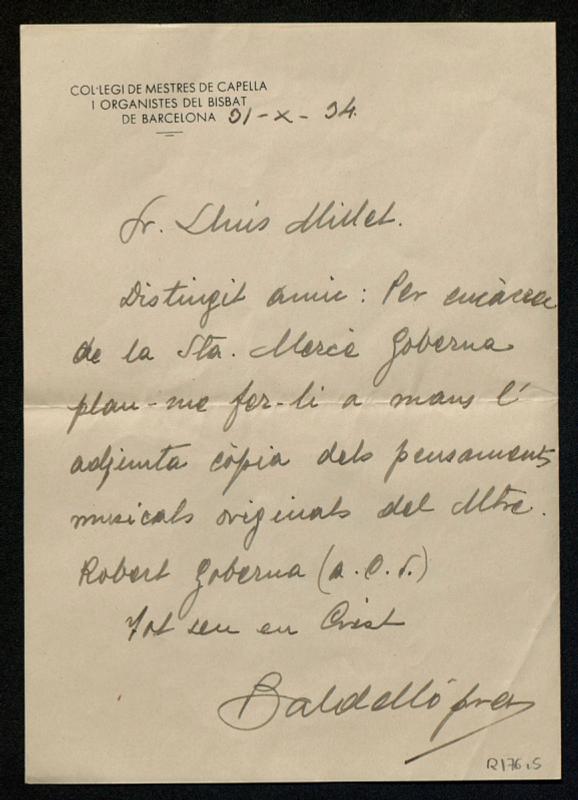 COL·LEGI DE MESTRES DE CAPELLA
I ORGANISTES DEL BISBAT
DE BARCELONA 31-X-34.
Sr. Lluís Millet.
Distingit amic: Per encàrrec
de la Sta. Mercè Goberna
plau-me fer-li a mans l'
adjunta còpia dels pensaments
musicals originals del Mtre.
Robert Goberna (a. C. s.)
Tot seu en Crist
Baldelló pvre
R176.5